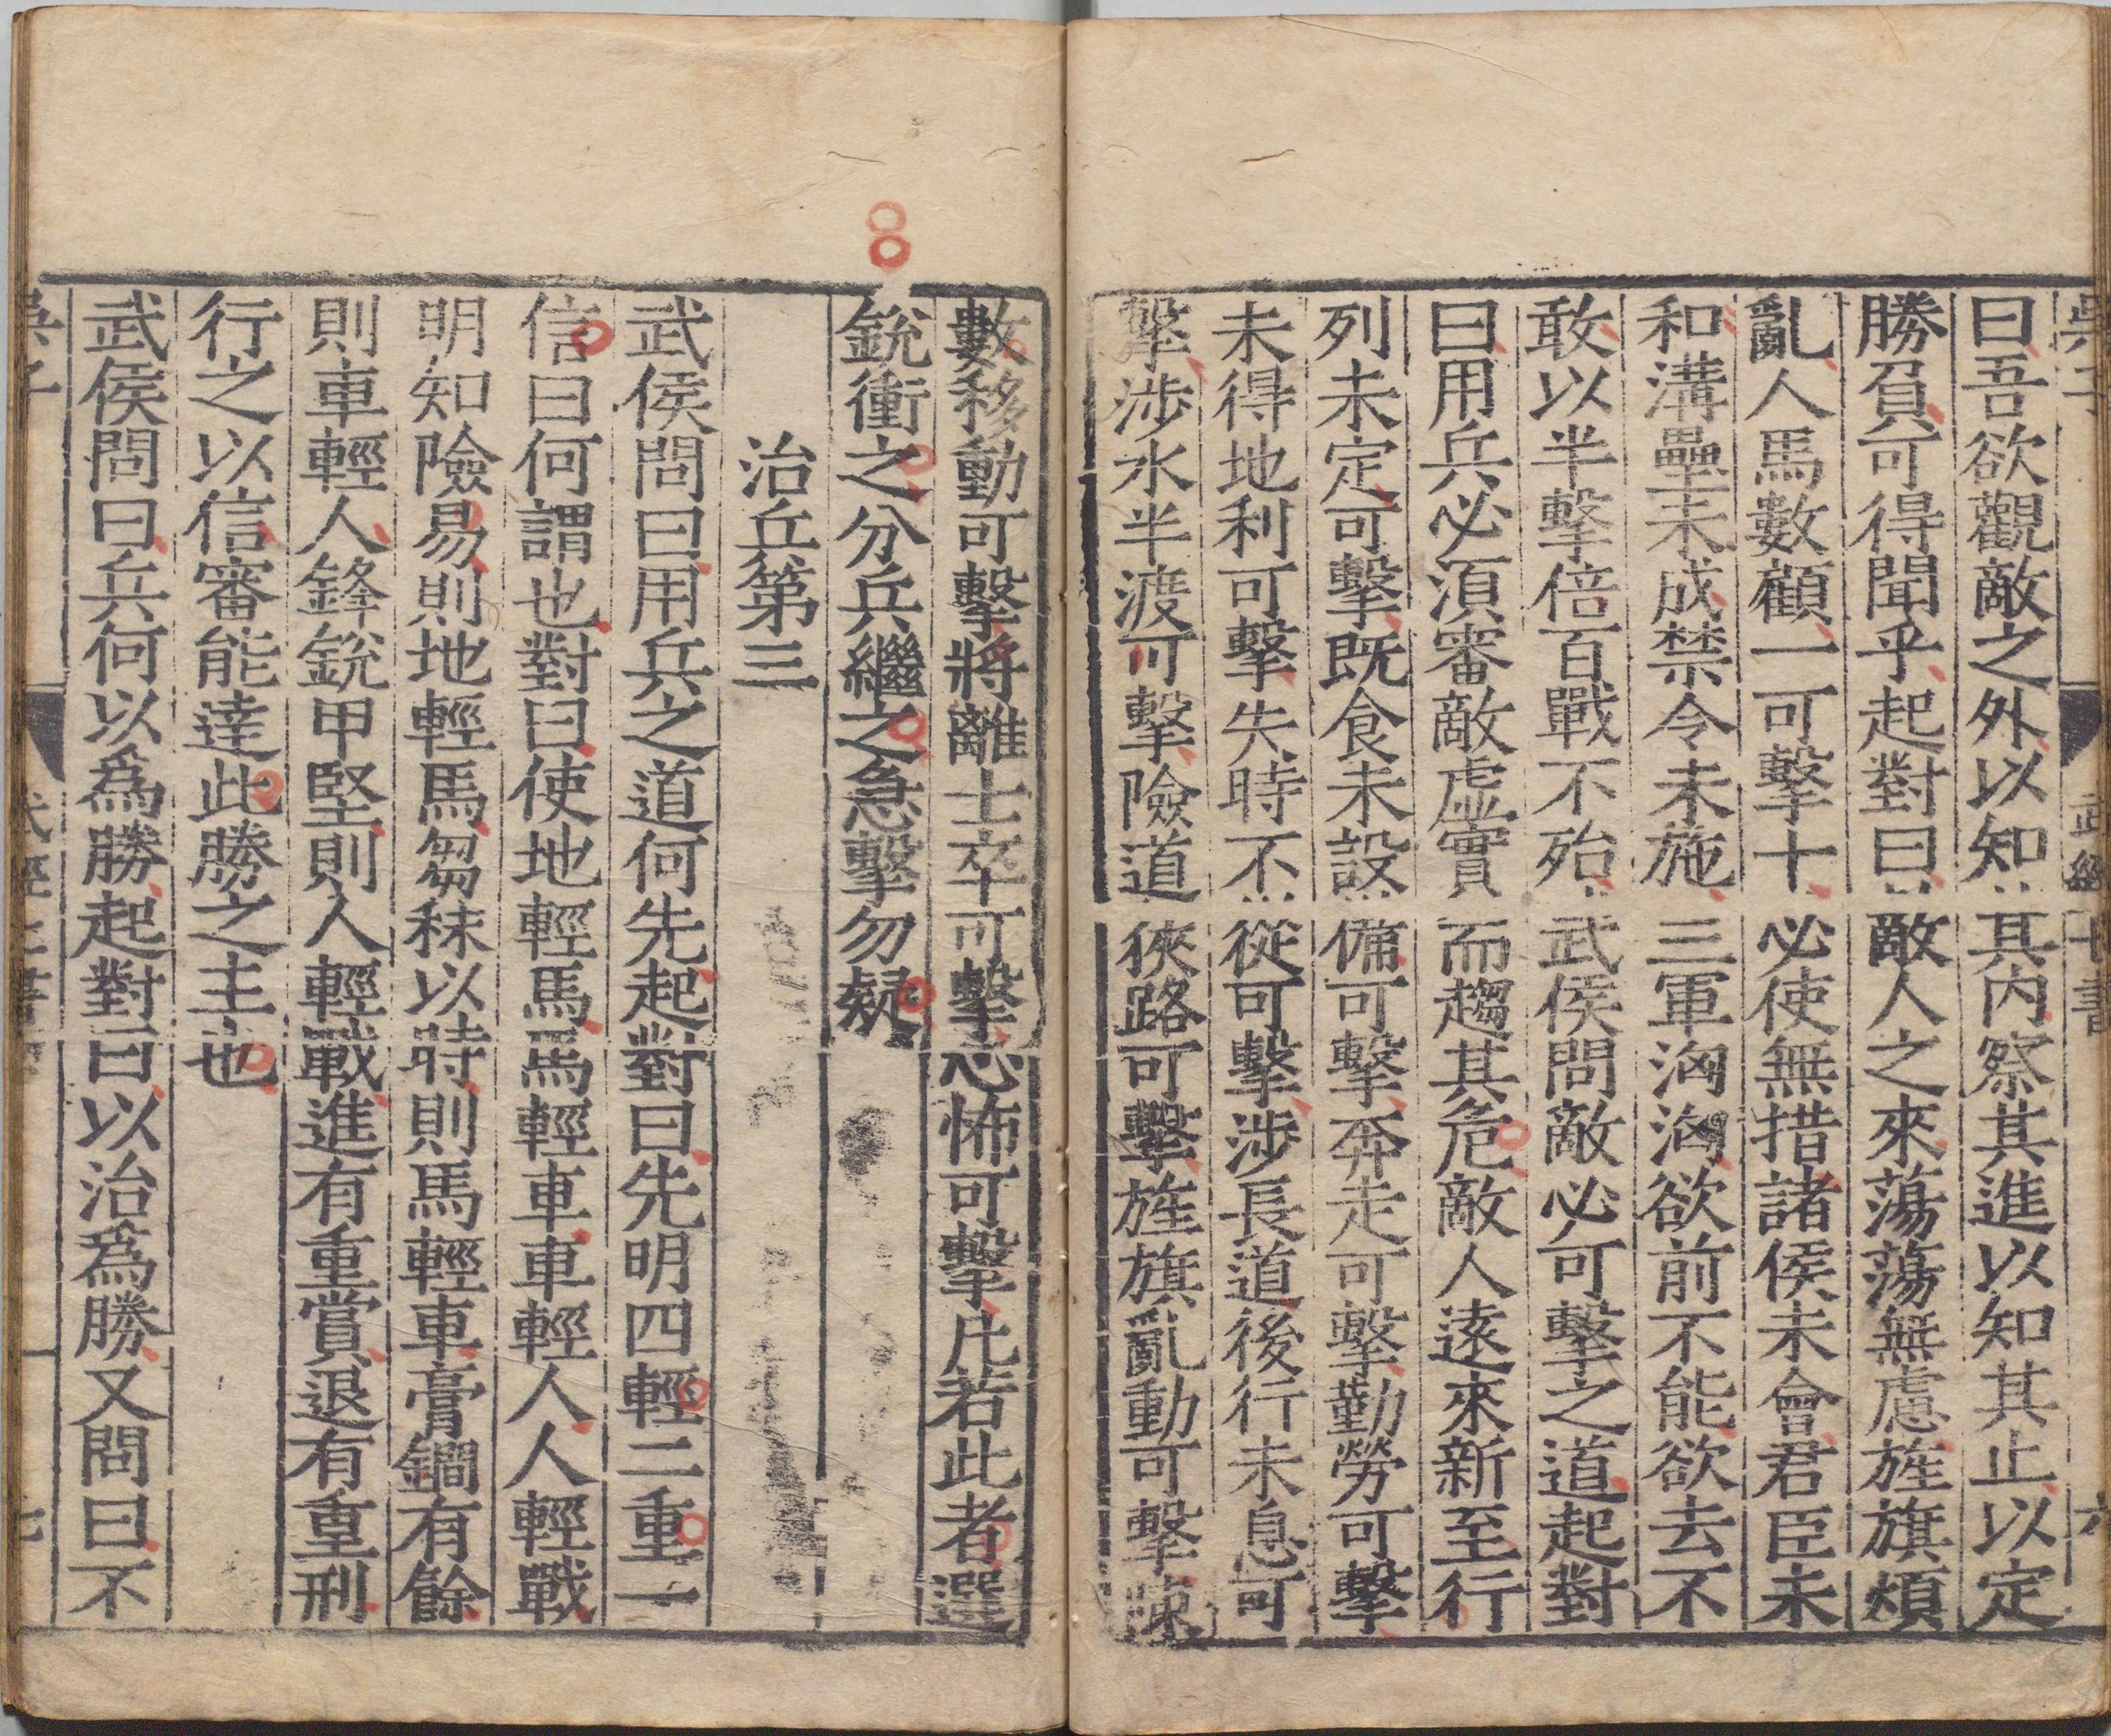 吳子 武經七書 六
曰吾欲觀敵之外以知其內察其進以知其止以定
勝負可得聞乎起對曰敵人之來蕩蕩無慮旌旗煩
亂人馬數顧一可擊十必使無措諸侯未會君臣未
和溝壘未成禁令未施三軍洶洶欲前不能欲去不
敢以半擊倍百戰不殆武侯問敵必可擊之道起對
曰用兵必須審敵虛實而趨其危敵人遠來新至行
列未定可擊既食未設備可擊奔走可擊勤勞可擊
未得地利可擊失時不從可擊涉長道後行未息可
擊涉水半渡可擊險道狹路可擊旌旗亂動可擊陳
數移動可擊將離士卒可擊心怖可擊凡若此者選
銳衝之分兵繼之急擊勿疑
治兵第三
武侯問曰用兵之道何先起對曰先明四輕二重一
信曰何謂也對曰使地輕馬馬輕車車輕人人輕戰
明知險易則地輕馬芻秣以時則馬輕車膏鐧有餘
則車輕人鋒銳甲堅則人輕戰進有重賞退有重刑
行之以信審能達此勝之主也
武侯問曰兵何以為勝起對曰以治為勝又問曰不
吳子 武經七書 七